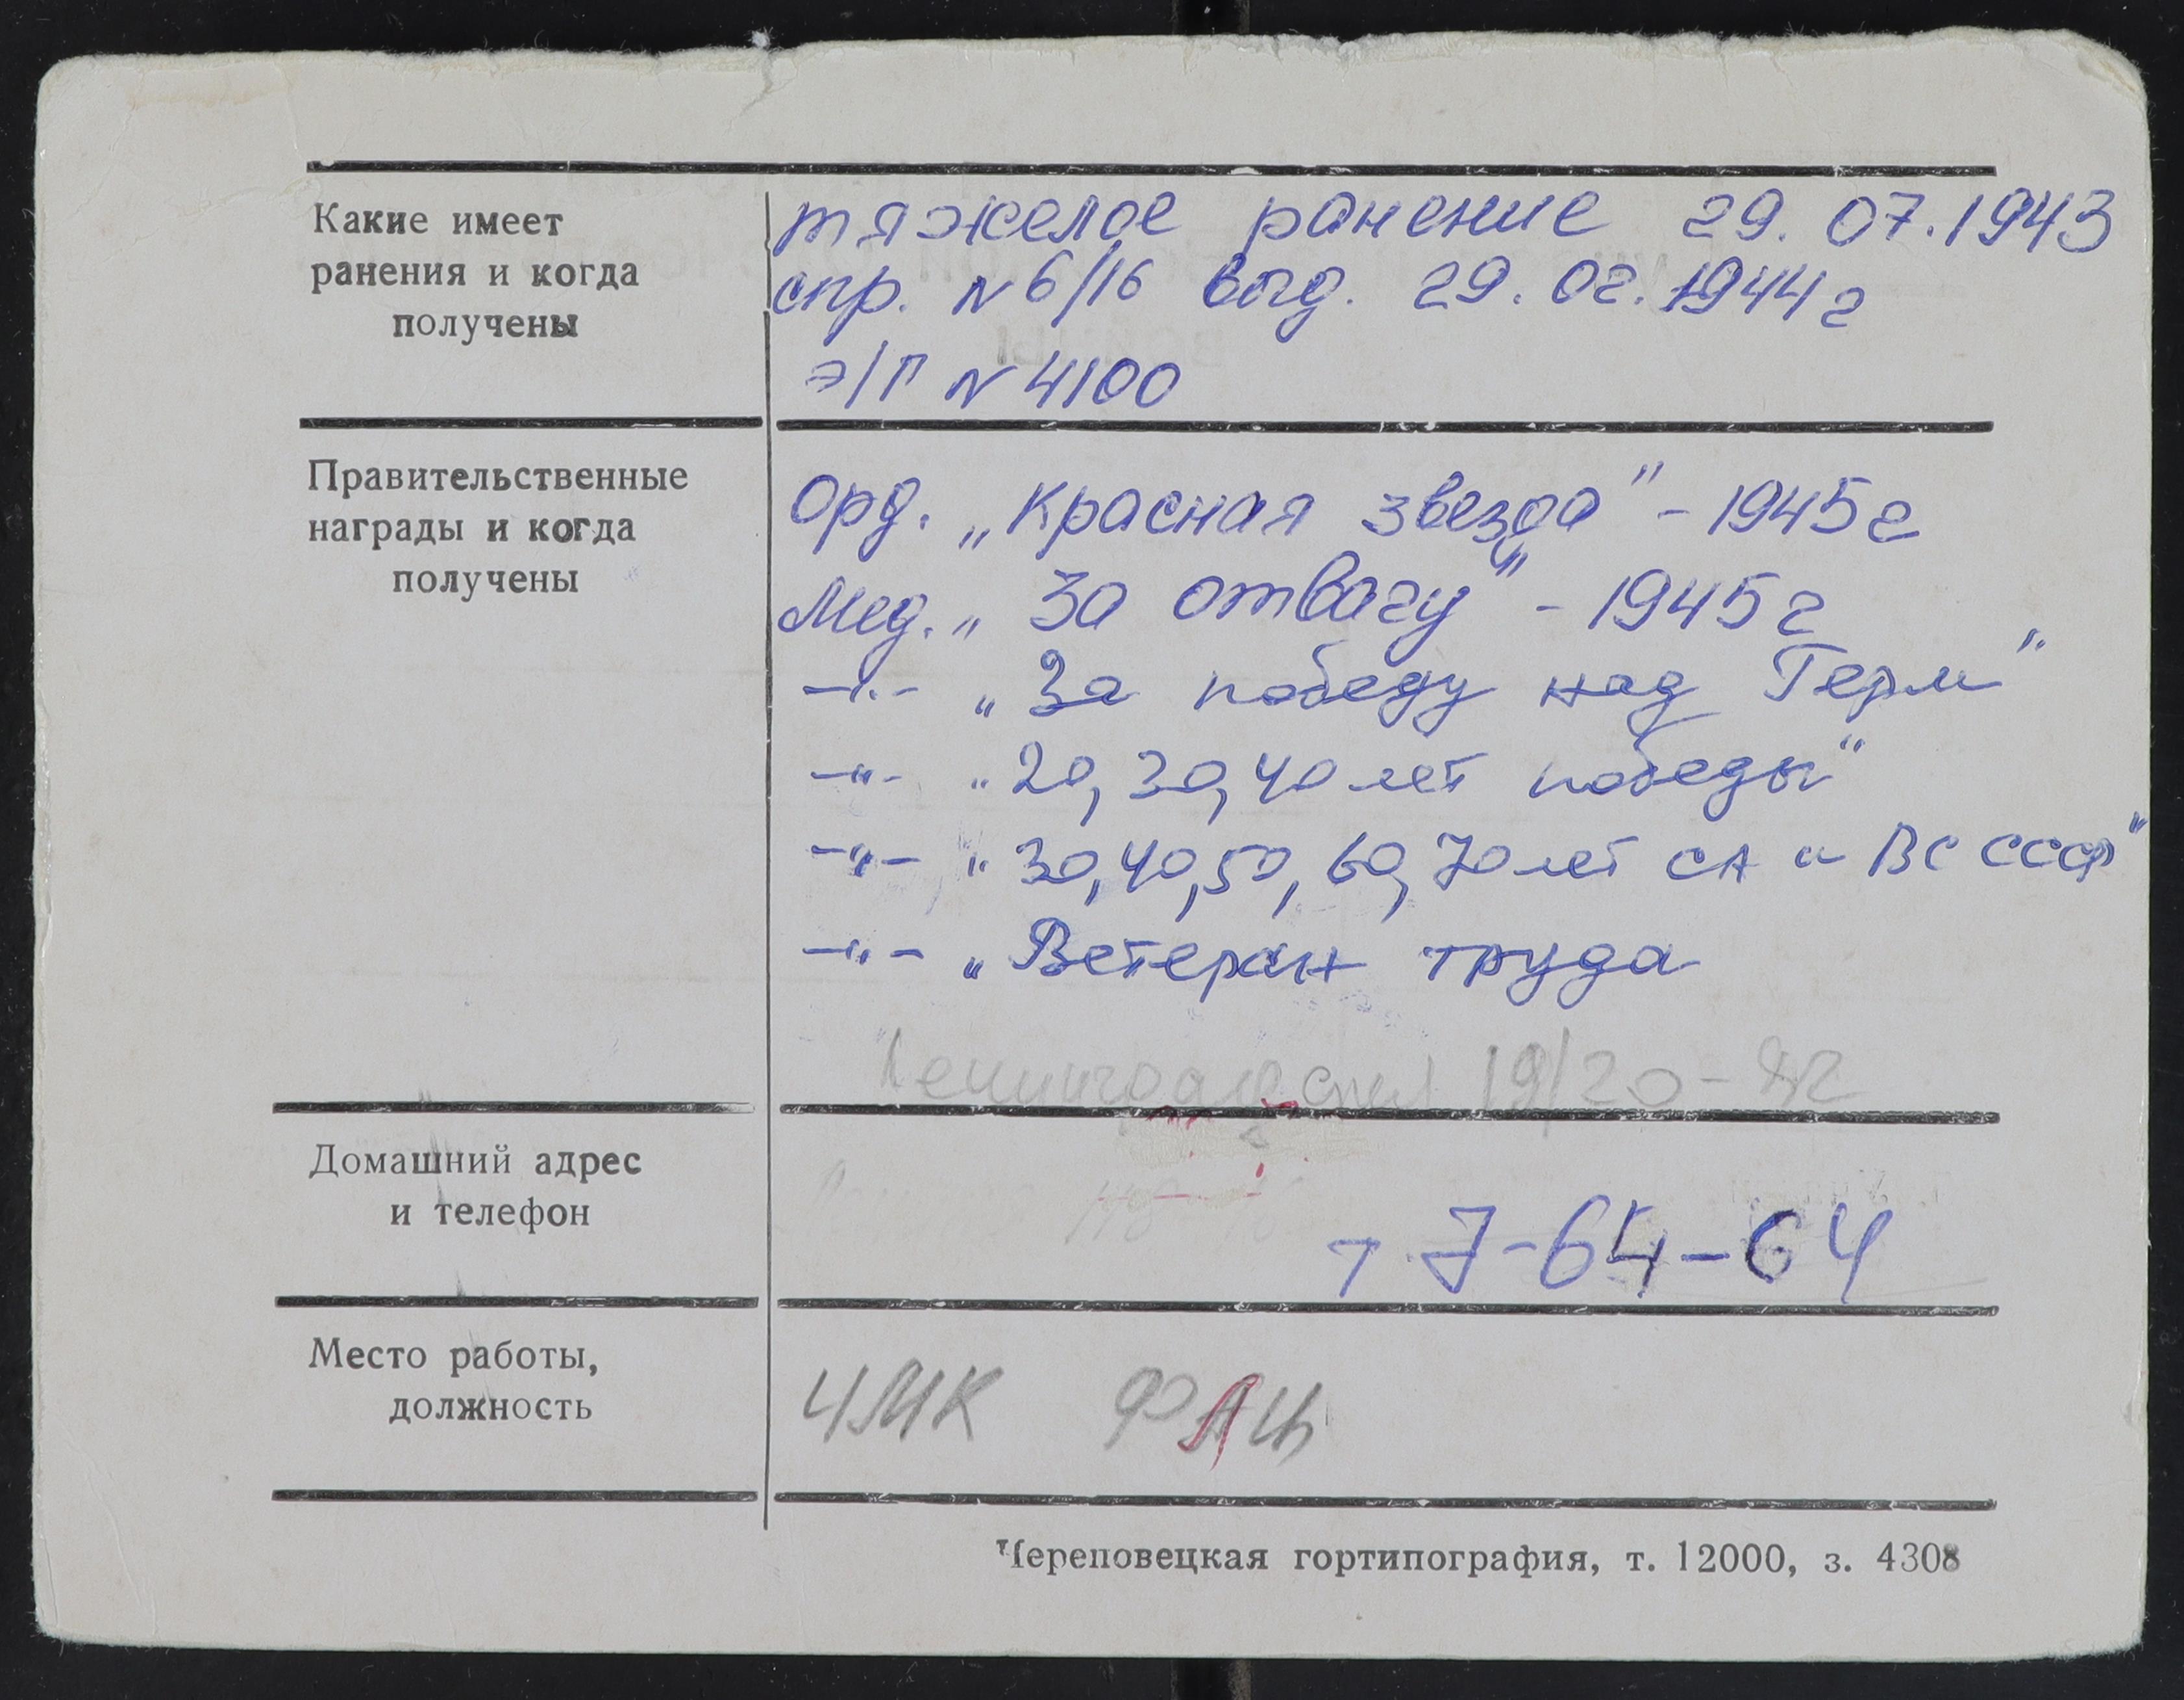 Какие имеет
ранения и когда
получены
тяжелое ранение 29.07.1943
спр. N 6/16 выд. 29.02.1944г
Э/Г N 4100
Правительственные
награды и когда
получены
Орд. „Красная звезда" - 1945г
Мед. „За отвагу" - 1945г
-"- „За победу над Герм"
-"- „20, 30, 40 лет победы"
-"- „30, 40, 50, 60, 70 лет СА и ВС СССР"
-"- „Ветеран труда
Ленинградская 19/20-
Домашний адрес
и телефон
т 7-64-64
Место работы,
должность
ЧМК
Череповецкая гортипография, т. 12000, з. 4308